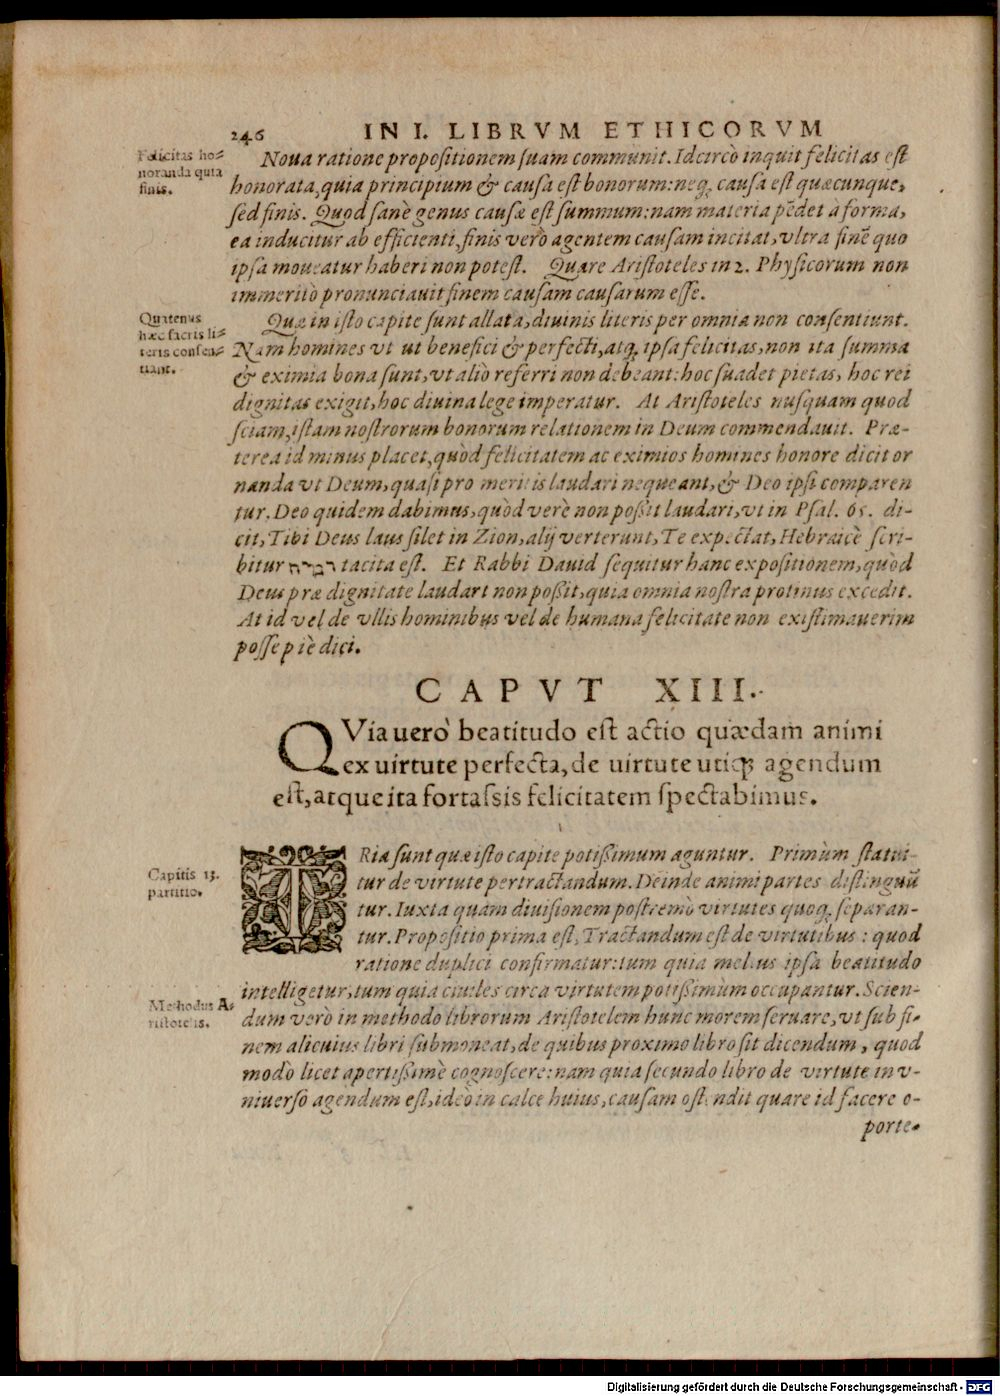 246 IN I. LIBRVM ETHICORVM
Felicitas ho=
noranda quia
finis.
Noua ratione propositionem suam communit. Idcircò inquit felicitas est
honorata, quia principium & causa est bonorum: neq; causa est quæcunque,
sed finis. Quod sanè genus causæ est summum: nam materia pēdet à forma,
ea inducitur ab efficienti, finis verò agentem causam incitat, vltra finē quo
ipsa moueatur haberi non potest. Quare Aristoteles in 2. Physicorum non
immeritò pronunciauit finem causam causarum esse.
Quatenus
hæc sacris li=
teris consen=
tiant.
Quæ in isto capite sunt allata, diuinis literis per omnia non consentiunt.
Nam homines vt ut benefici & perfecti, atq; ipsa felicitas, non ita summa
& eximia bona sunt, vt aliò referri non debeant: hoc suadet pietas, hoc rei
dignitas exigit, hoc diuina lege imperatur. At Aristoteles nusquam quod
sciam, istam nostrorum bonorum relationem in Deum commendauit. Præ-
terea id minus placet, quòd felicitatem ac eximios homines honore dicit or
nanda vt Deum, quasi pro meritis laudari nequeant, & Deo ipsi comparen
tur. Deo quidem dabimus, quòd verè non poßit laudari, vt in Psal. 65. di-
cit, Tibi Deus laus silet in Zion, alij verterunt, Te expectat, Hebraicè scri-
bitur tacita est. Et Rabbi Dauid sequitur hanc expositionem, quòd
Deus præ dignitate laudari non poßit, quia omnia nostra protinus excedit.
At id vel de vllis hominibus vel de humana felicitate non existimauerim
posse piè dici.
CAPVT XIII.
QVia uerò beatitudo est actio quædam animi
ex uirtute perfecta, de uirtute utiq; agendum
est, atque ita fortassis felicitatem spectabimus.
Capitis 13.
partitio.
TRia sunt quæ isto capite potißimum aguntur. Primùm statui-
tur de virtute pertractandum. Deinde animi partes distinguū
tur. Iuxta quam diuisionem postremò virtutes quoq; separan-
tur. Propositio prima est, Tractandum est de virtutibus: quod
ratione duplici confirmatur: tum quia melius ipsa beatitudo
intelligetur, tum quia ciuiles circa virtutem potißimùm occupantur. Scien-
Methodus A=
ristotelis.
dum verò in methodo librorum Aristotelem hunc morem seruare, vt sub fi-
nem alicuius libri submoneat, de quibus proximo libro sit dicendum, quod
modò licet apertißimè cognoscere: nam quia secundo libro de virtute in v-
niuerso agendum est, ideò in calce huius, causam ostendit quare id facere o-
porte-
Digitalisierung gefördert durch die Deutsche Forschungsgemeinschaft - DFG